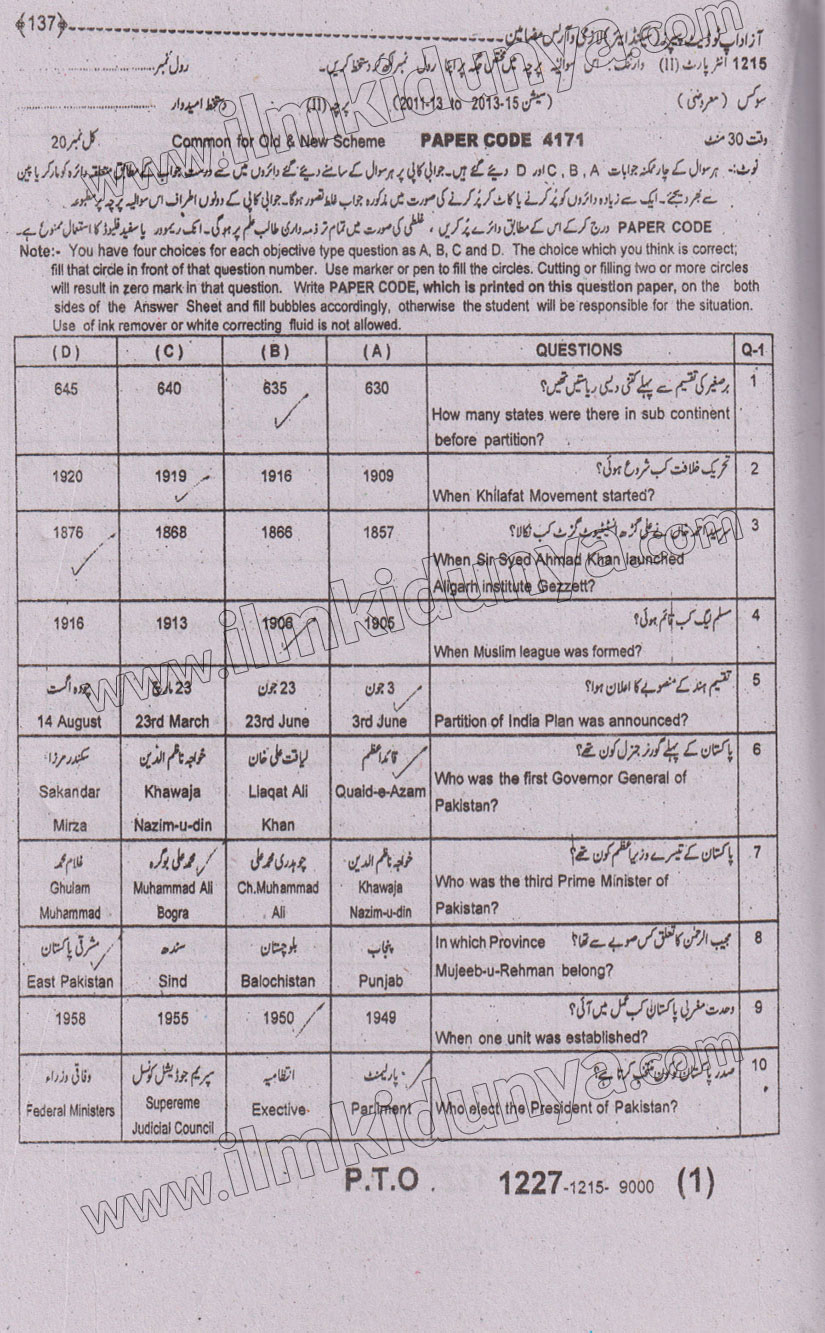 ﴾137﴿
آزاد اپ ٹو ڈیٹ پیپرز (سیکنڈ ایئر) لازمی و آرٹس مضامین
1215 انٹر پارٹ (II) سوالیہ پرچہ میں مختص جگہ پر اپنا رولنمبر لکھ کر دستخط کریں۔ رول نمبر
سوکس (معروضی) (سیشن 2011-13 to 2013-15) پرچہ (II) دستخط امیدوار
وقت 30 منٹ PAPER CODE 4171 Common for Old & New Scheme کل نمبر 20
نوٹ:- ہر سوال کے چار ممکنہ جوابات C, B, A اور D دیئے گئے ہیں۔ جوابی کاپی پر ہر سوال کے سامنے دیئے گئے دائروں میں سے درست جواب کے مطابق متعلقہ دائرہ کو مارکر یا پین
سے بھر دیجئے۔ ایک سے زیادہ دائروں کو پُر کرنے یا کاٹ کر پُر کرنے کی صورت میں مذکورہ جواب غلط تصور ہوگا۔ جوابی کاپی کے دونوں اطراف اس سوالیہ پرچہ پر مطبوعہ
PAPER CODE درج کر کے اس کے مطابق دائرے پُر کریں، غلطی کی صورت میں تمام تر ذمہ داری طالب علم پر ہوگی۔ انک ریمور یا سفید فلیوڈ کا استعمال ممنوع ہے۔
Note:- You have four choices for each objective type question as A, B, C and D. The choice which you think is correct;
fill that circle in front of that question number. Use marker or pen to fill the circles. Cutting or filling two or more circles
will result in zero mark in that question. Write PAPER CODE, which is printed on this question paper, on the both
sides of the Answer Sheet and fill bubbles accordingly, otherwise the student will be responsible for the situation.
Use of ink remover or white correcting fluid is not allowed.
(D) (C) (B) (A) QUESTIONS Q-1
برصغیر کی تقسیم سے پہلے کتنی دیسی ریاستیں تھیں؟ 1
645 640 635 630
How many states were there in sub continent
before partition?
تحریک خلافت کب شروع ہوئی؟ 2
1920 1919 1916 1909
When Khilafat Movement started?
سرسید احمد خاں نے علی گڑھ انسٹیٹیوٹ گزٹ کب نکالا؟ 3
1876 1868 1866 1857
When Sir Syed Ahmad Khan launched
Aligarh institute Gezzett?
مسلم لیگ کب قائم ہوئی؟ 4
1916 1913 1906 1905
When Muslim league was formed?
تقسیم ہند کے منصوبے کا اعلان ہوا؟ 5
چودہ اگست 23 مارچ 23 جون 3 جون
14 August 23rd March 23rd June 3rd June
Partition of India Plan was announced?
پاکستان کے پہلے گورنر جنرل کون تھے؟ 6
سکندر مرزا خواجہ ناظم الدین لیاقت علی خان قائداعظم
Who was the first Governor General of
Sakandar Khawaja Liaqat Ali Quaid-e-Azam
Pakistan?
Mirza Nazim-u-din Khan
پاکستان کے تیسرے وزیراعظم کون تھے؟ 7
غلام محمد محمد علی بوگرہ چوہدری محمد علی خواجہ ناظم الدین
Who was the third Prime Minister of
Ghulam Muhammad Ali Ch.Muhammad Khawaja
Pakistan?
Muhammad Bogra Ali Nazim-u-din
In which Province مجیب الرحمٰن کا تعلق کس صوبے سے تھا؟ 8
مشرقی پاکستان سندھ بلوچستان پنجاب
East Pakistan Sind Balochistan Punjab Mujeeb-u-Rehman belong?
وحدت مغربی پاکستان کب عمل میں آئی؟ 9
1958 1955 1950 1949
When one unit was established?
صدر پاکستان کو کون منتخب کرتا ہے؟ 10
وفاقی وزراء سپریم جوڈیشل کونسل انتظامیہ پارلیمنٹ
Federal Ministers Supereme Exective Parliment Who elect the President of Pakistan?
Judicial Council
P.T.O. 1227-1215- 9000 (1)
www.ilmkidunya.com
www.ilmkidunya.com
www.ilmkidunya.com